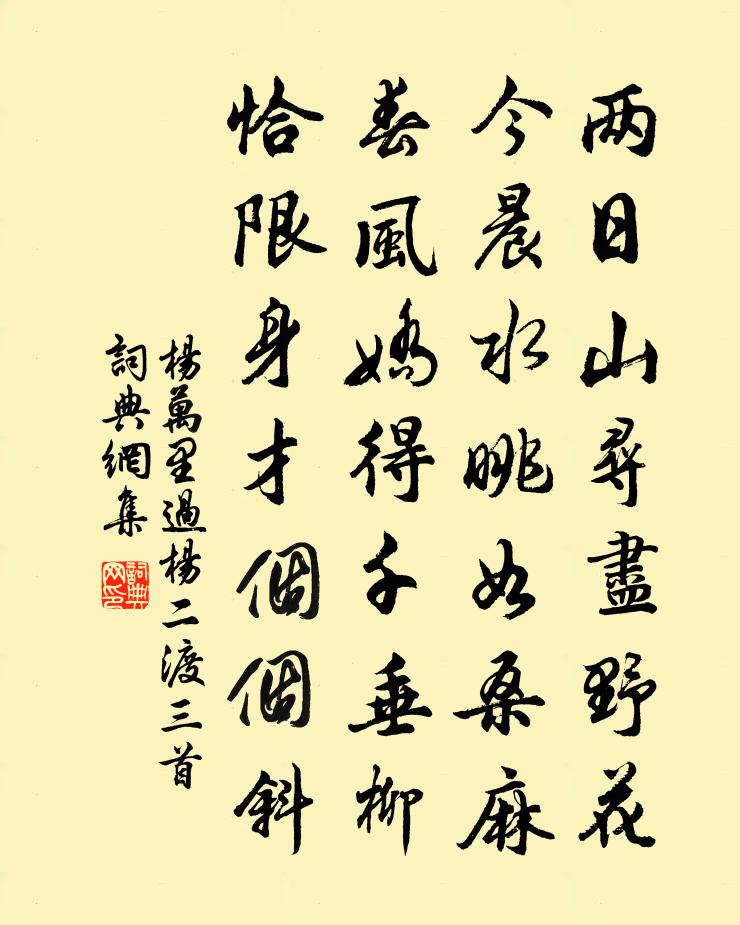 两日山尋盡野花
今晨水眺如桑麻
春風嬌得千垂柳
恰限身才個個斜
楊萬里過楊二渡三首
詞典網集
詞典
网印